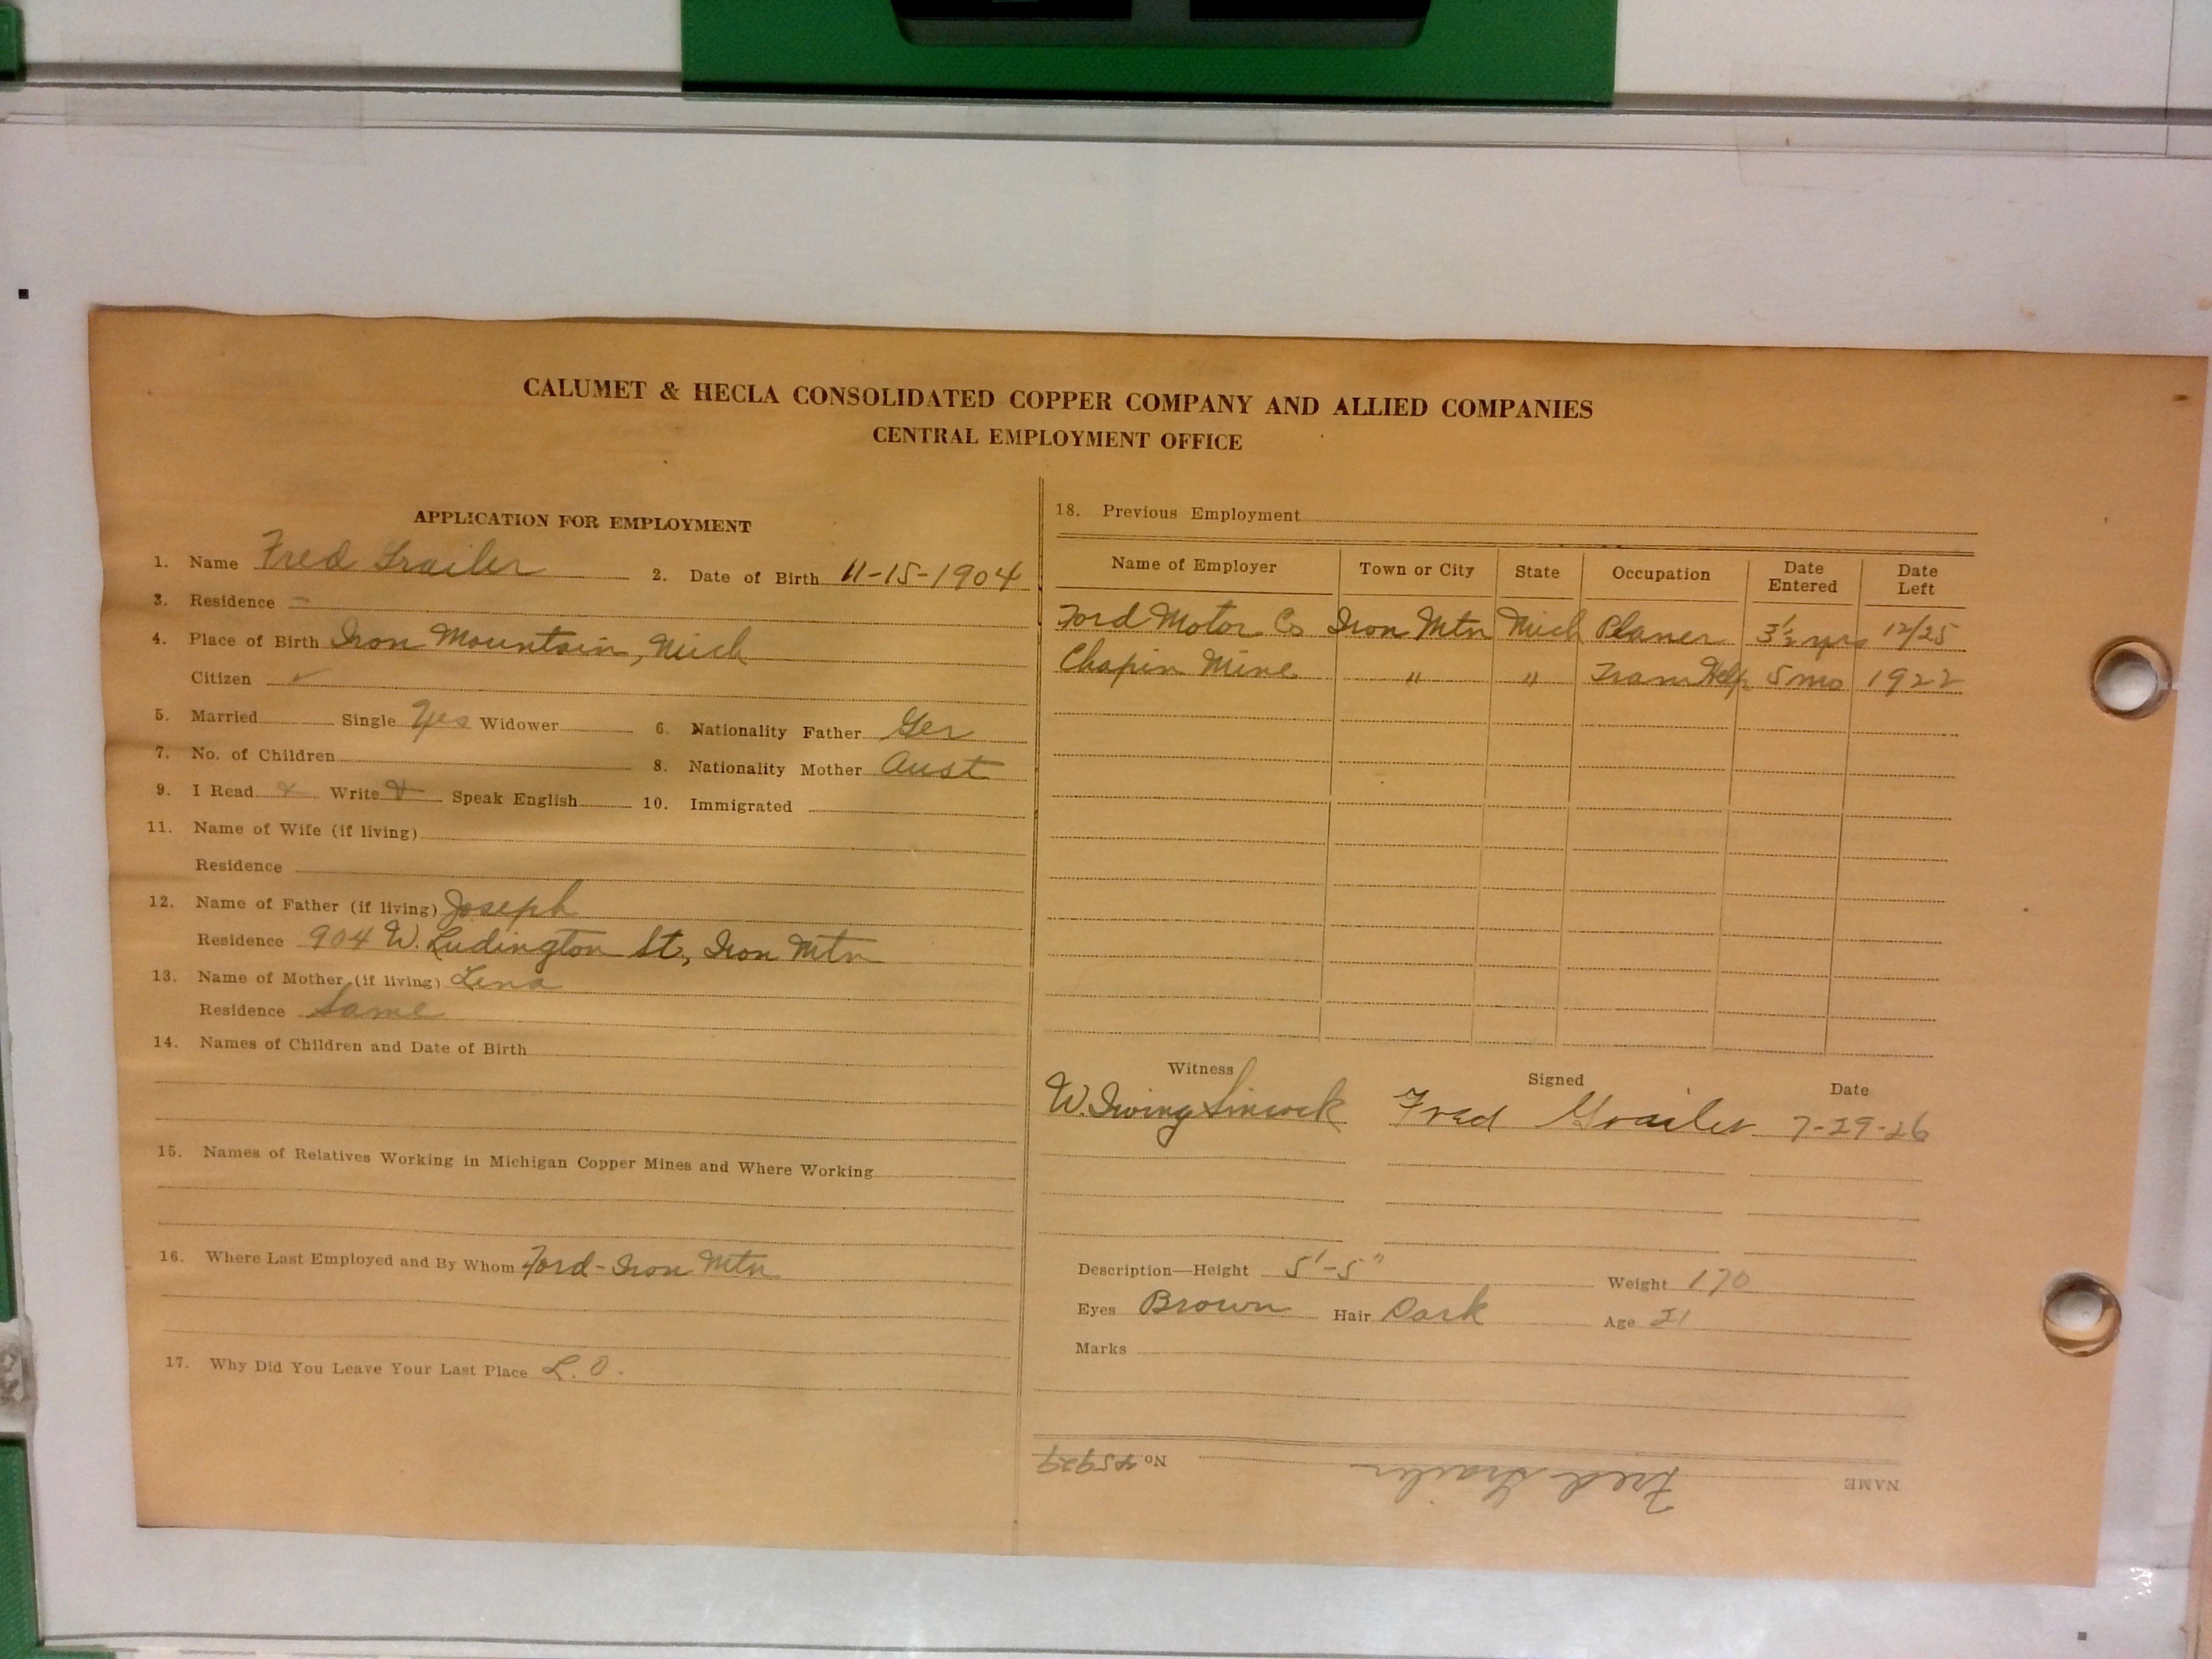 CALUMET & HECLA CONSOLIDATED COPPER COMPANY AND ALLIED COMPANIES
CENTRAL EMPLOYMENT OFFICE
APPLICATION FOR EMPLOYMENT
1. Name Fred Grailer 2. Date of Birth 11-15-1904
3. Residence -
4. Place of Birth Iron Mountain, Mich
Citizen ✓
5. Married Single Yes Widower 6. Nationality Father Ger
7. No. of Children 8. Nationality Mother Aust
9. I Read Write Speak English 10. Immigrated
11. Name of Wife (if living)
Residence
12. Name of Father (if living) Joseph
Residence 904 W. Ludington St, Iron Mtn
13. Name of Mother (if living) Lena
Residence Same
14. Names of Children and Date of Birth
15. Names of Relatives Working in Michigan Copper Mines and Where Working
16. Where Last Employed and By Whom Ford-Iron Mtn
17. Why Did You Leave Your Last Place L.O.
18. Previous Employment
Name of Employer Town or City State Occupation Date Entered Date Left
Ford Motor Co Iron Mtn Mich Planer 3½ yrs 12/25
Chapin Mine " " Tram Help 5 mo 1922
Witness Signed Date
W. Irving Sincock Fred Grailer 7-29-26
Description—Height 5'-5" Weight 170
Eyes Brown Hair Dark Age 21
Marks
NAME Fred Grailer No 45929